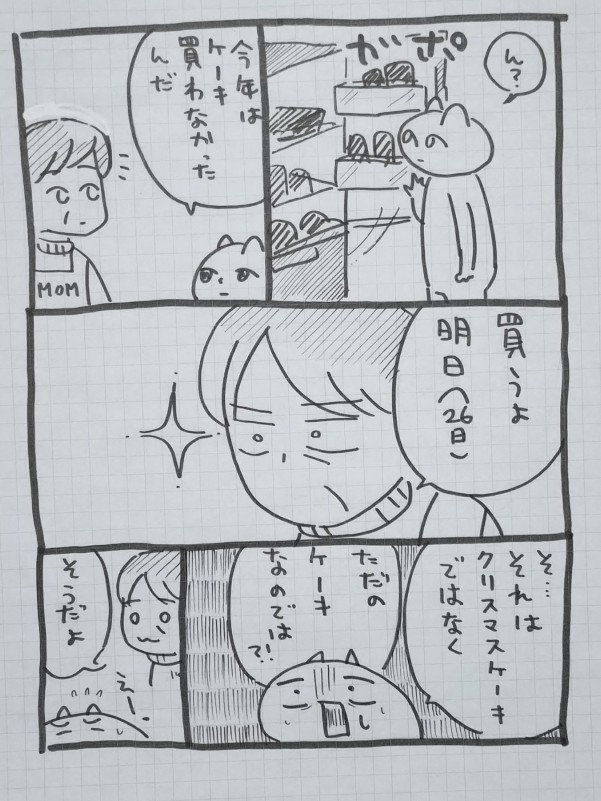 ん?
ガポ
今年は
ケーキ
買わなかった
んだ
MOM
買うよ
明日(26日)
そ…
それは
クリスマスケーキ
ではなく
ただの
ケーキ
なのでは
?!
そうだよ
えー